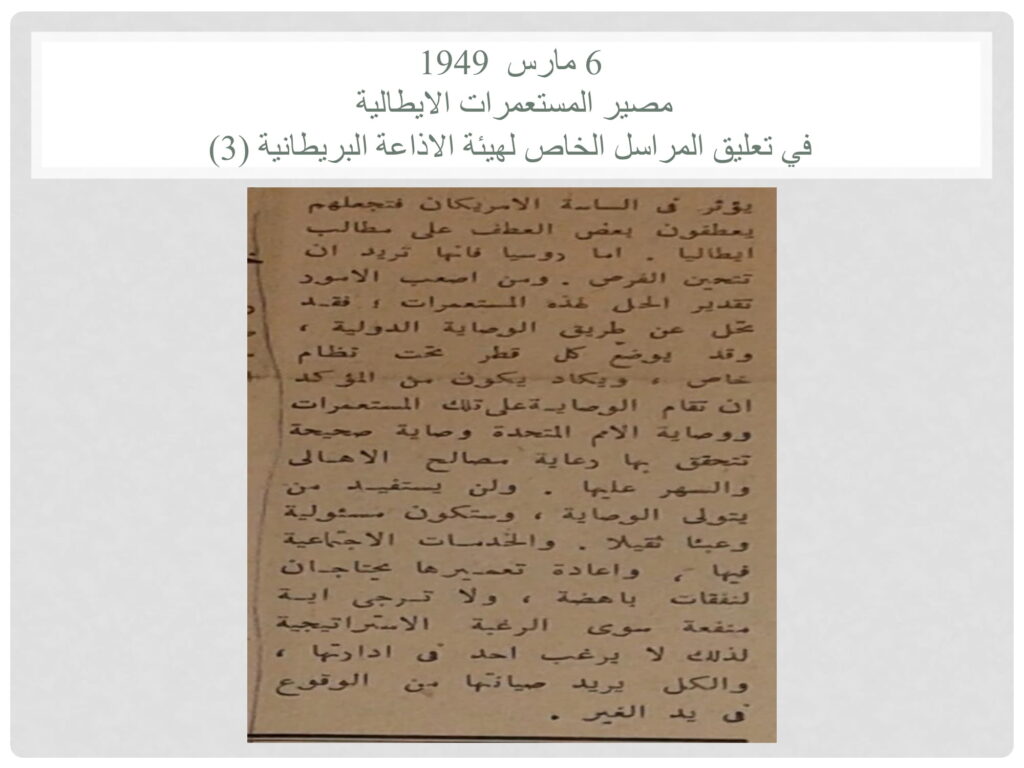 6 مارس 1949
مصير المستعمرات الايطالية
في تعليق المراسل الخاص لهيئة الاذاعة البريطانية (3)
يؤثر فى الساسة الامريكان فتجعلهم
يعطفون بعض العطف على مطالب
ايطاليا . اما روسيا فانها تريد ان
تتحين الفرص . ومن اصعب الامور
تقدير الحل لهذه المستعمرات ؛ فقد
تحل عن طريق الوصاية الدولية ،
وقد يوضع كل قطر تحت نظام
خاص ، ويكاد يكون من المؤكد
ان تقام الوصاية على تلك المستعمرات
ووصاية الامم المتحدة وصاية صحيحة
تتحقق بها رعاية مصالح الاهالى
والسهر عليها . ولن يستفيد من
يتولى الوصاية ، وستكون مسئولية
وعبئا ثقيلا . والخدمات الاجتماعية
فيها ، واعادة تعميرها يحتاجان
لنفقات باهضة ، ولا ترجى اية
منفعة سوى الرغبة الاستراتيجية
لذلك لا يرغب احد فى ادارتها ،
والكل يريد صيانتها من الوقوع
فى يد الغير .